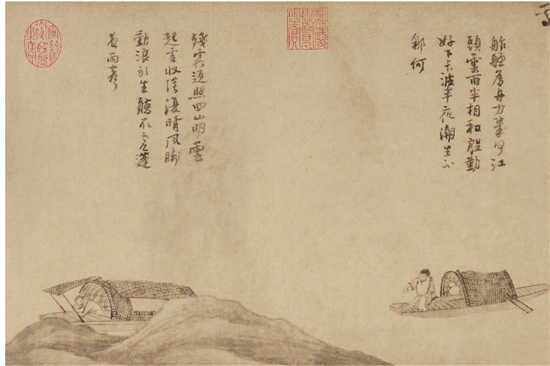 舴艋為舟力幾多江
頭雲雨半相和殷勤
好下長波半夜潮生不
那何
殘霞返照四山明雲
起雲收陰復晴風腳
動浪頭生聽取虛蓬
夜雨聲